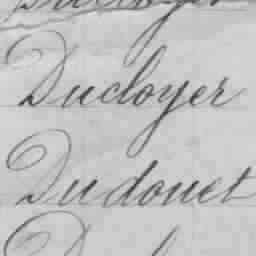 Ducloyer
Dudouet